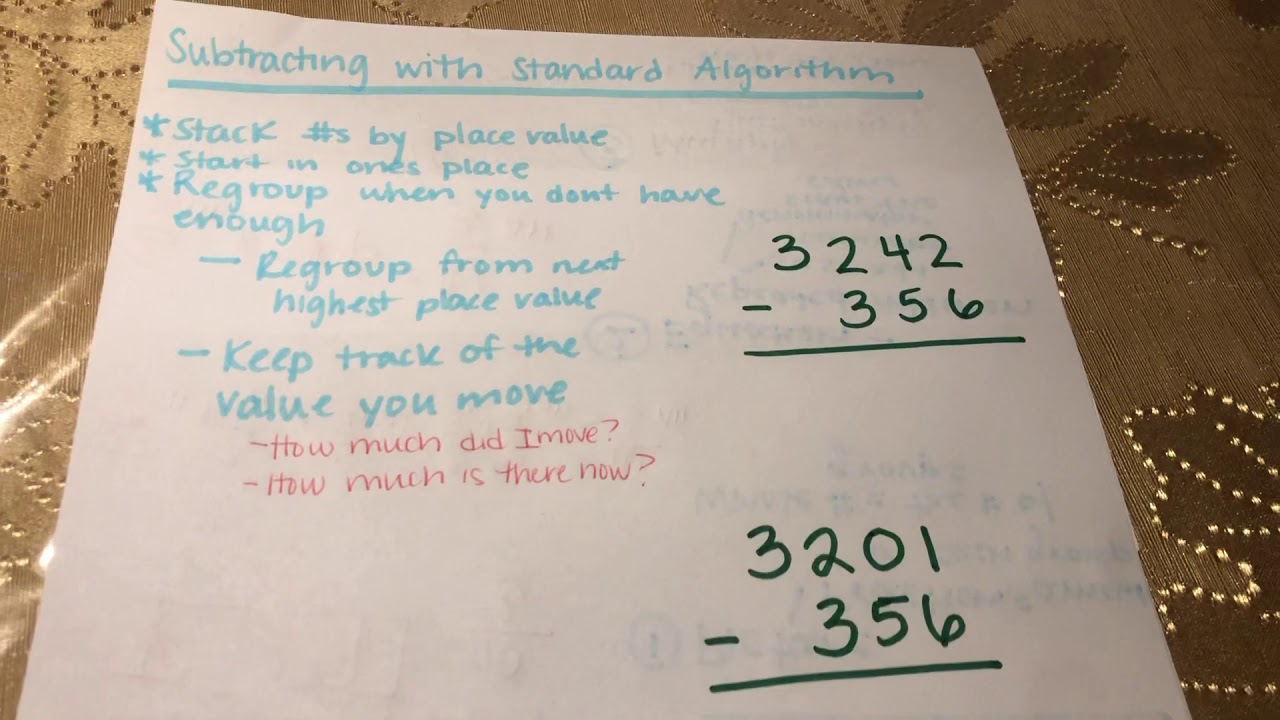 Subtracting with Standard Algorithm
* Stack #s by place value
* Start in ones place
* Regroup when you dont have
enough
- Regroup from next
highest place value
- Keep track of the
value you move
- How much did I move?
- How much is there now?
3242
- 356
3201
- 356